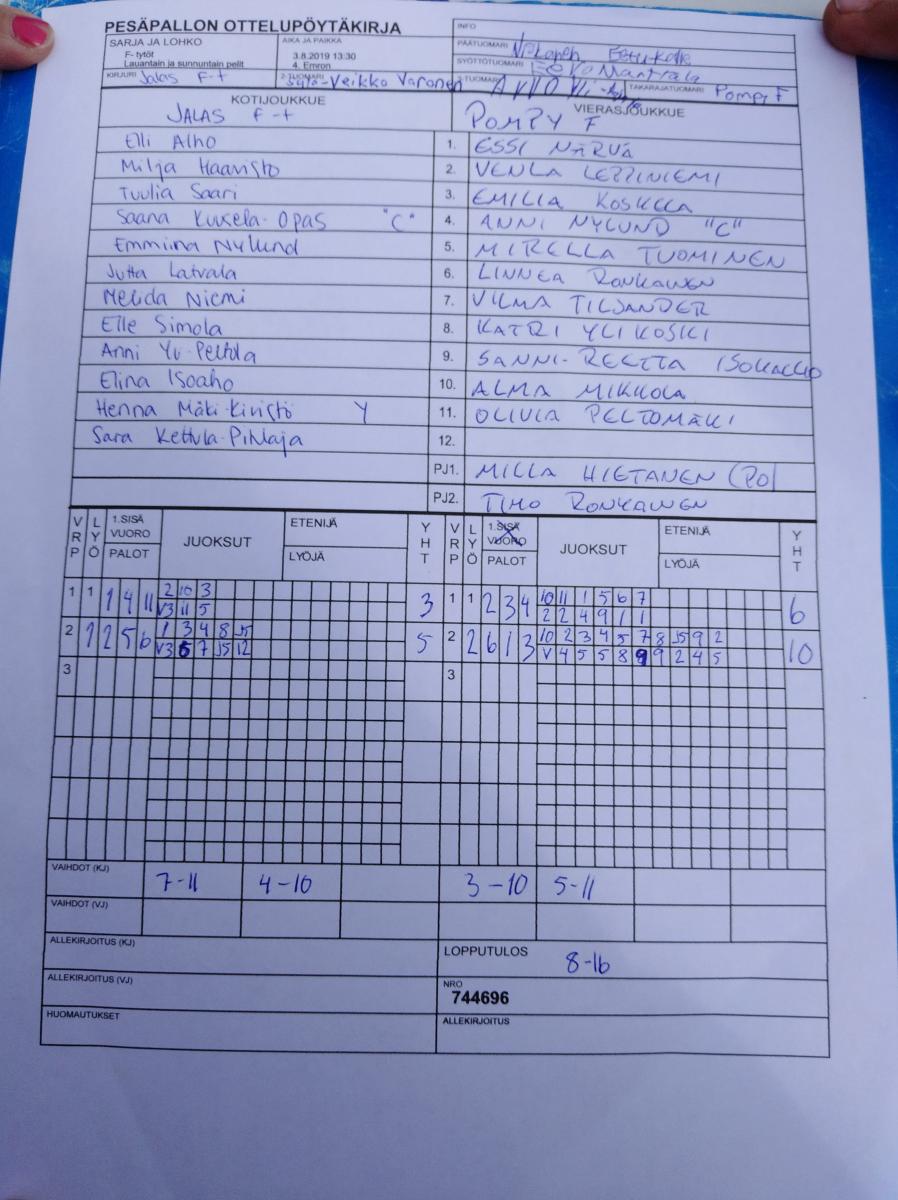 PESÄPALLON OTTELUPÖYTÄKIRJA
INFO
SARJA JA LOHKO
F- tytöt
Lauantain ja sunnuntain pelit
AIKA JA PAIKKA
3.8.2019 13:30
4. Emron
PÄÄTUOMARI
SYÖTTÖTUOMARI
KIRJURI Jalas F-t
2-TUOMARI -Veikko Varonen
3-TUOMARI
TAKARAJATUOMARI Pompy F
KOTIJOUKKUE
JALAS F-t
VIERASJOUKKUE
POMPY F
Elli Alho 1. ESSI NÄRVÄ
Milja Haavisto 2. VENLA LEPPINIEMI
Tuulia Saari 3. EMILIA KOSKELA
Saana Kuusela-Opas "C" 4. ANNI NYLUND "C"
Emmina Nylund 5. MIRELLA TUOMINEN
Jutta Latvala 6. LINNEA RONKAINEN
Melida Niemi 7. VILMA TILJANDER
Elle Simola 8. KATRI YLIKOSKI
Anni Yli-Peltola 9. SANNI-REETTA ISOKALLIO
Elina Isoaho 10. ALMA MIKKOLA
Henna Mäki-Kivistö Y 11. OLIVIA PELTOMÄKI
Sara Kettula-Pihlaja 12.
PJ1. MILLA HIETANEN (PO)
PJ2. TIMO RONKAINEN
VRP LYÖ 1.SISÄ VUORO PALOT JUOKSUT ETENIJÄ LYÖJÄ YHT VRP LYÖ 1.SISÄ VUORO PALOT JUOKSUT ETENIJÄ LYÖJÄ YHT
1 1 1 4 11 2 10 3 3 1 1 2 3 4 10 11 1 5 6 7 6
V3 11 5 2 2 4 9 1 1
2 1 2 5 6 1 3 4 8 J5 5 2 2 6 1 3 10 2 3 4 5 7 8 J5 9 2 10
V3 6 7 J5 12 V 4 5 5 8 9 9 2 4 5
3 3
VAIHDOT (KJ) 7-11 4-10 3-10 5-11
VAIHDOT (VJ)
ALLEKIRJOITUS (KJ)
LOPPUTULOS 8-16
ALLEKIRJOITUS (VJ)
NRO
744696
HUOMAUTUKSET
ALLEKIRJOITUS